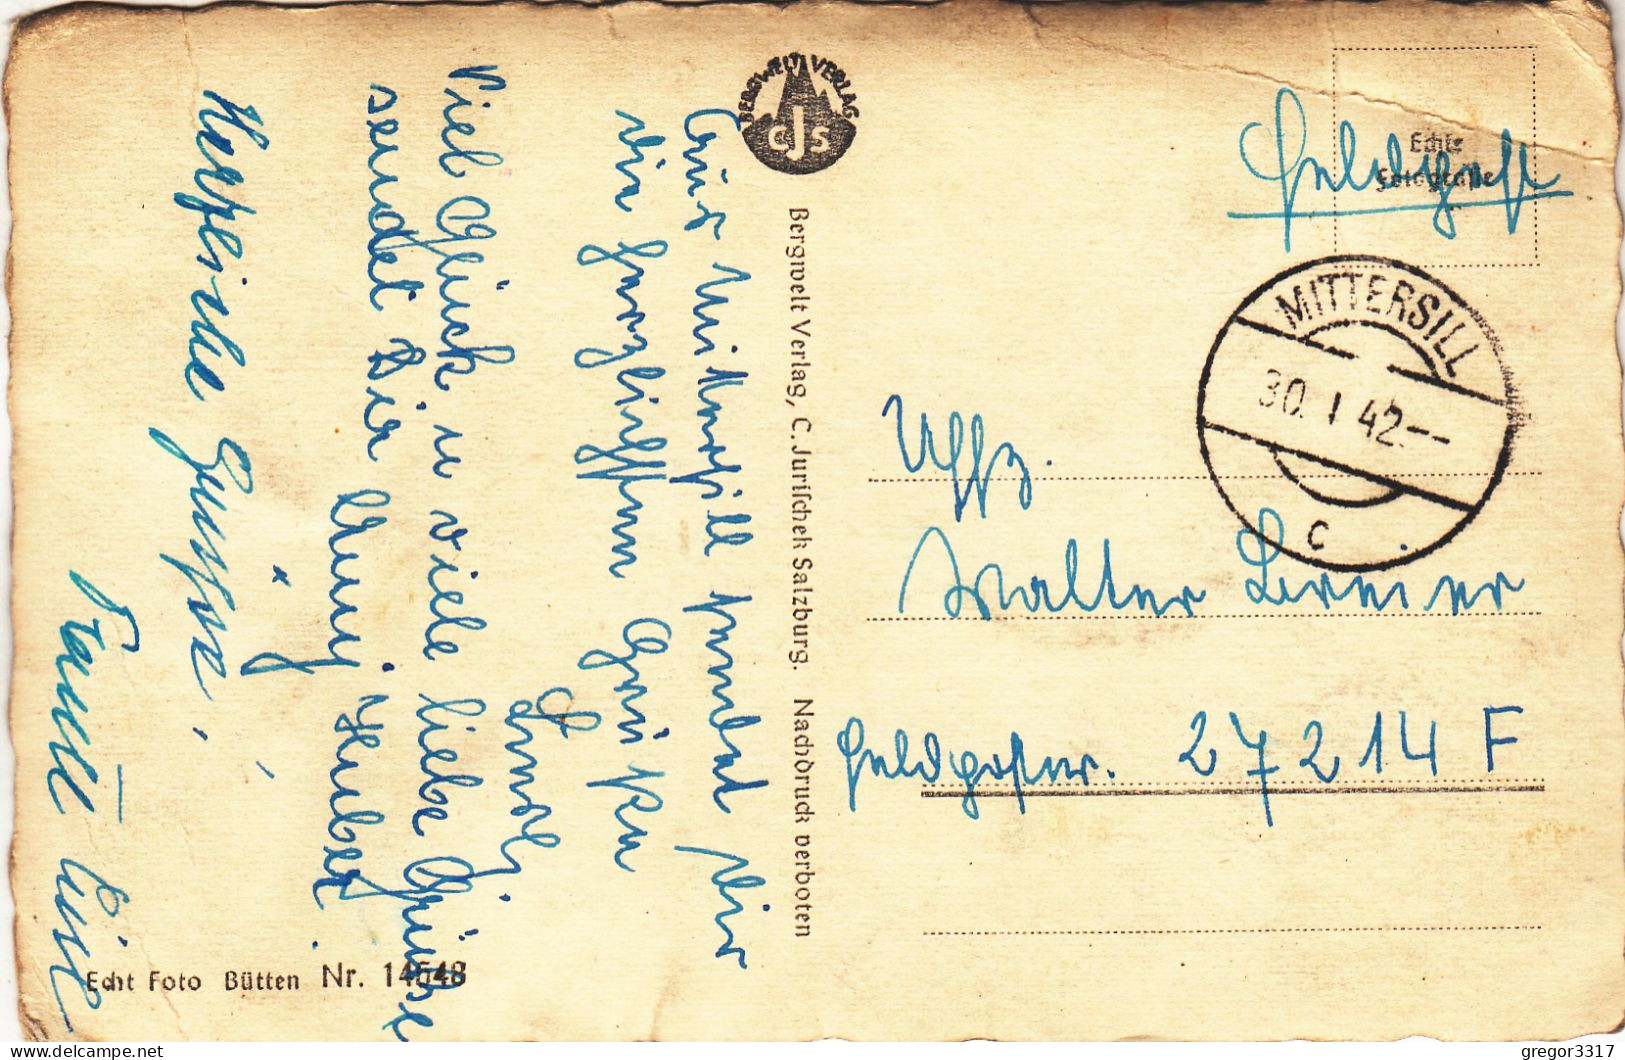 Aus Mittersill sendet Dir
die herzlichsten Grüße
Viel Glück u viele liebe Grüße
sendet Dir Anny Huber
Herzliche Grüße,
BERGWELT VERLAG
CJS
Bergwelt Verlag, C. Jurischek Salzburg. Nachdruck verboten
Echt Foto Bütten Nr. 14648
Feldpost
Echte
Fotografie
MITTERSILL
30. I 42.--
c
Uffz.
Walter
Feldpostnr. 27214 F
gregor3317